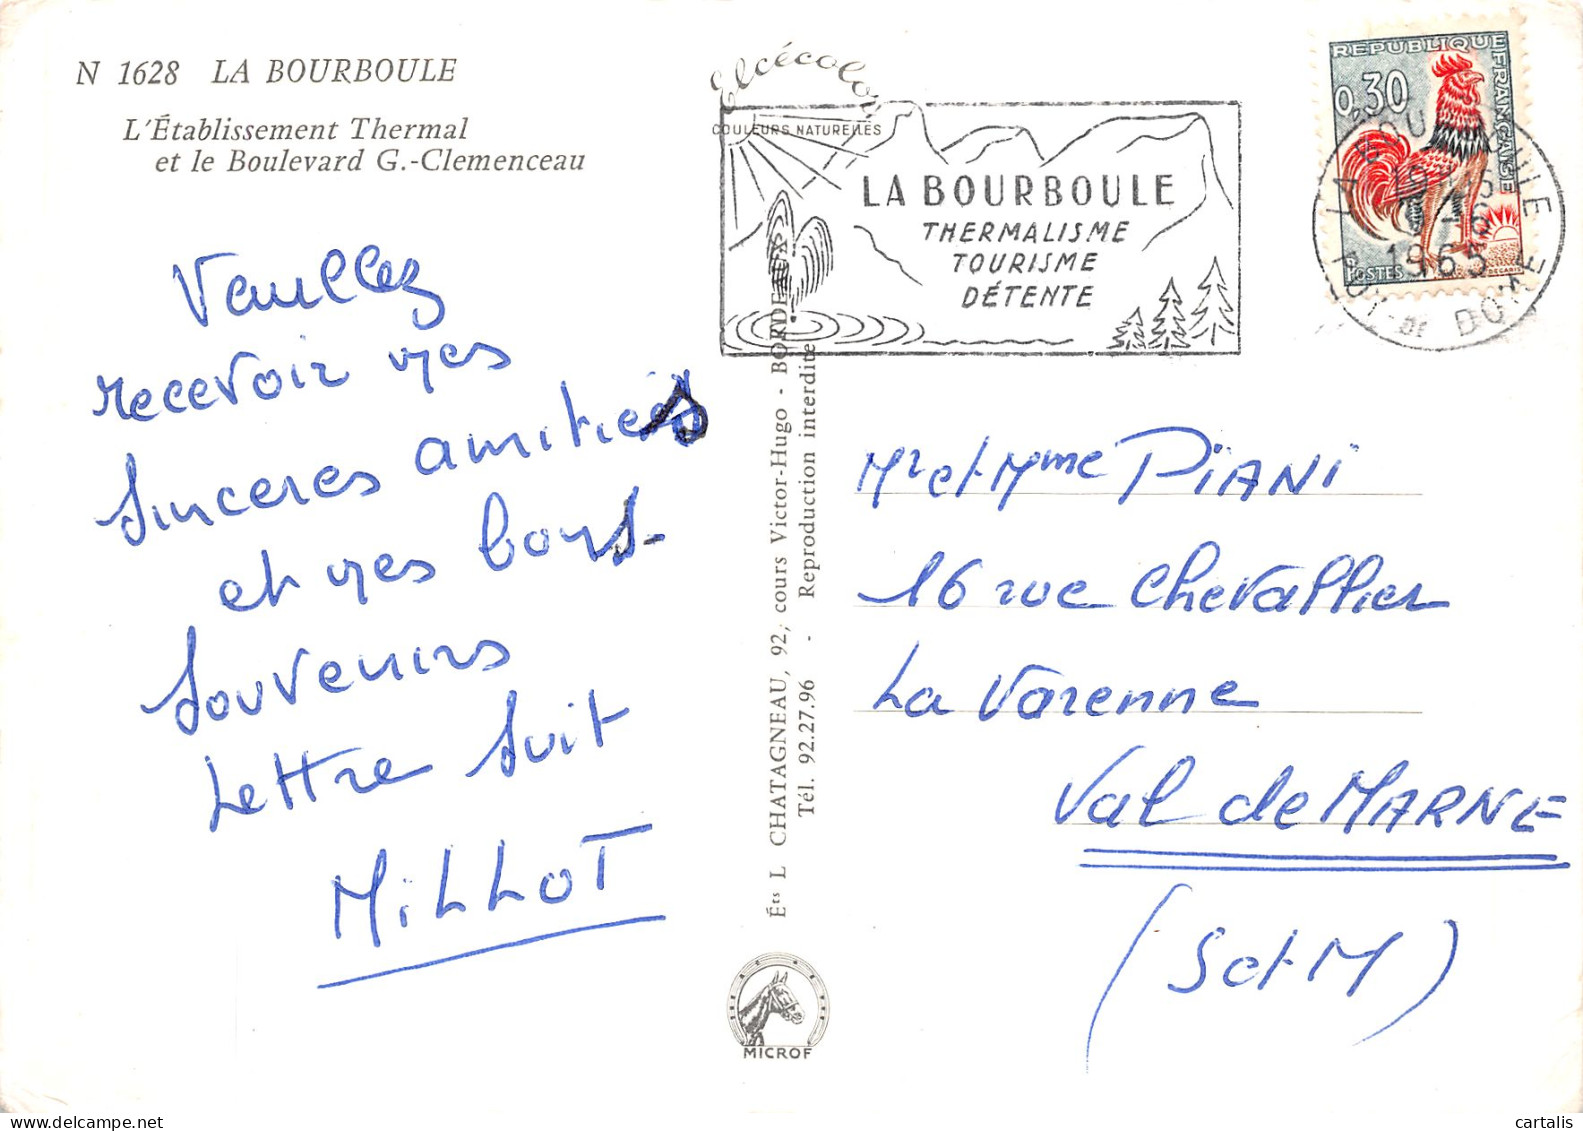 N 1628 LA BOURBOULE
L'Établissement Thermal
et le Boulevard G.-Clemenceau
Veuillez
recevoir mes
sinceres amitiés
et mes bons
souvenirs
Lettre suit
MiLLOT
Elcécolor
COULEURS NATURELLES
LA BOURBOULE
THERMALISME
TOURISME
DÉTENTE
REPUBLIQUE FRANÇAISE
0,30
POSTES
LA BOURBOULE
1965
PUY-DE DOME
Éts L CHATAGNEAU, 92, cours Victor-Hugo - BORDEAUX
Tél. 92.27.96 - Reproduction interdite
MICROF
Mr et Mme PiANi
16 rue Chevallier
La Varenne
Val de MARNE
(S et M)
cartalis